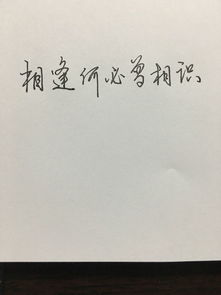 相逢何必曾相识